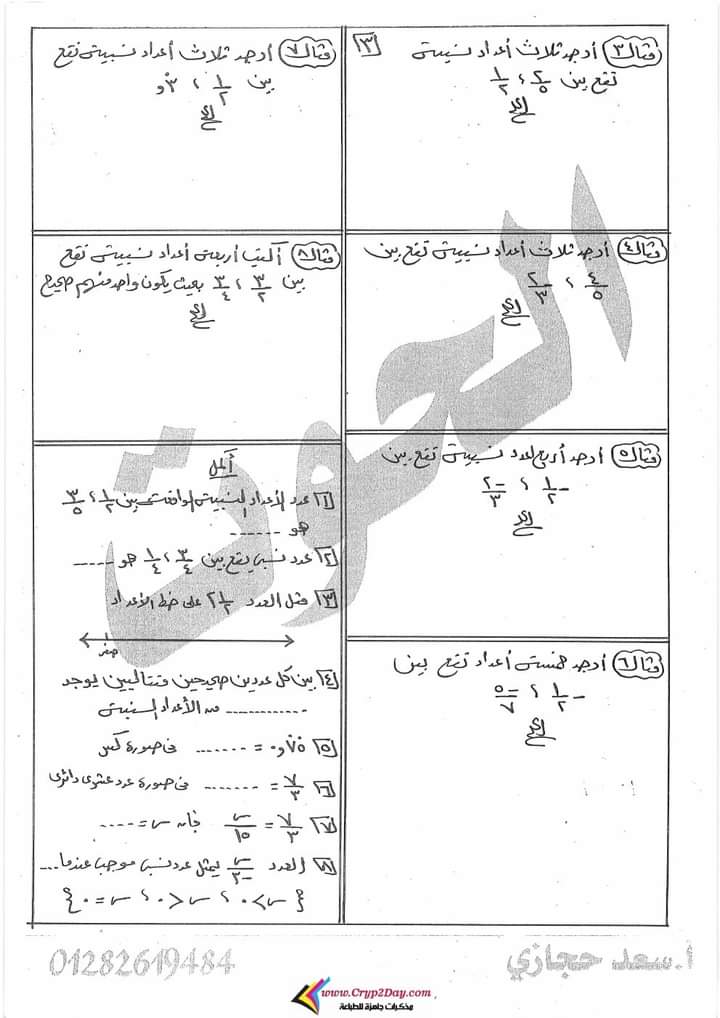 ٣
مثال ٣ أوجد ثلاث أعداد نسبية
تقع بين ٢/٥ ، ١/٢
الحل
مثال ٤ أوجد ثلاث أعداد نسبية تقع بين
٤/٥ ، ٢/٣
الحل
مثال ٥ أوجد أربع عدد نسبية تقع بين
-١/٢ ، -٢/٣
الحل
مثال ٦ أوجد خمسة أعداد تقع بين
-١/٢ ، -٥/٧
الحل
مثال ٧ أوجد ثلاث أعداد نسبية تقع
بين ١/٢ ، ٣و
الحل
مثال ٨ أكتب أربعة أعداد نسبية تقع
بين ٣/٢ ، ٣/٤ بحيث يكون واحد منهم صحيح
الحل
أكمل
١ عدد الأعداد النسبية الواقعة بين ١/٢ ، ٣/٥
هو ......
٢ عدد نسبي يقع بين ٣/٤ ، ١/٤ هو .....
٣ مثل العدد ٢ ١/٢ على خط الأعداد
صفر
٤ بين كل عددين صحيحين متتاليين يوجد
............ من الأعداد النسبية
٥ = ........ فى صورة كسر
٦ ٧/٣ = ....... فى صورة عدد عشرى دائرى
٧ ٧/٣ = س/١٥ فإن س = ....
٨ العدد س/-٢ يمثل عدد نسبى موجب عندما ...
{ س > ٠ ، س < ٠ ، س = ٠ }
أ.سعد حجازي
01282619484
العوت
www.Cryp2Day.com
مذكرات جاهزة للطباعة